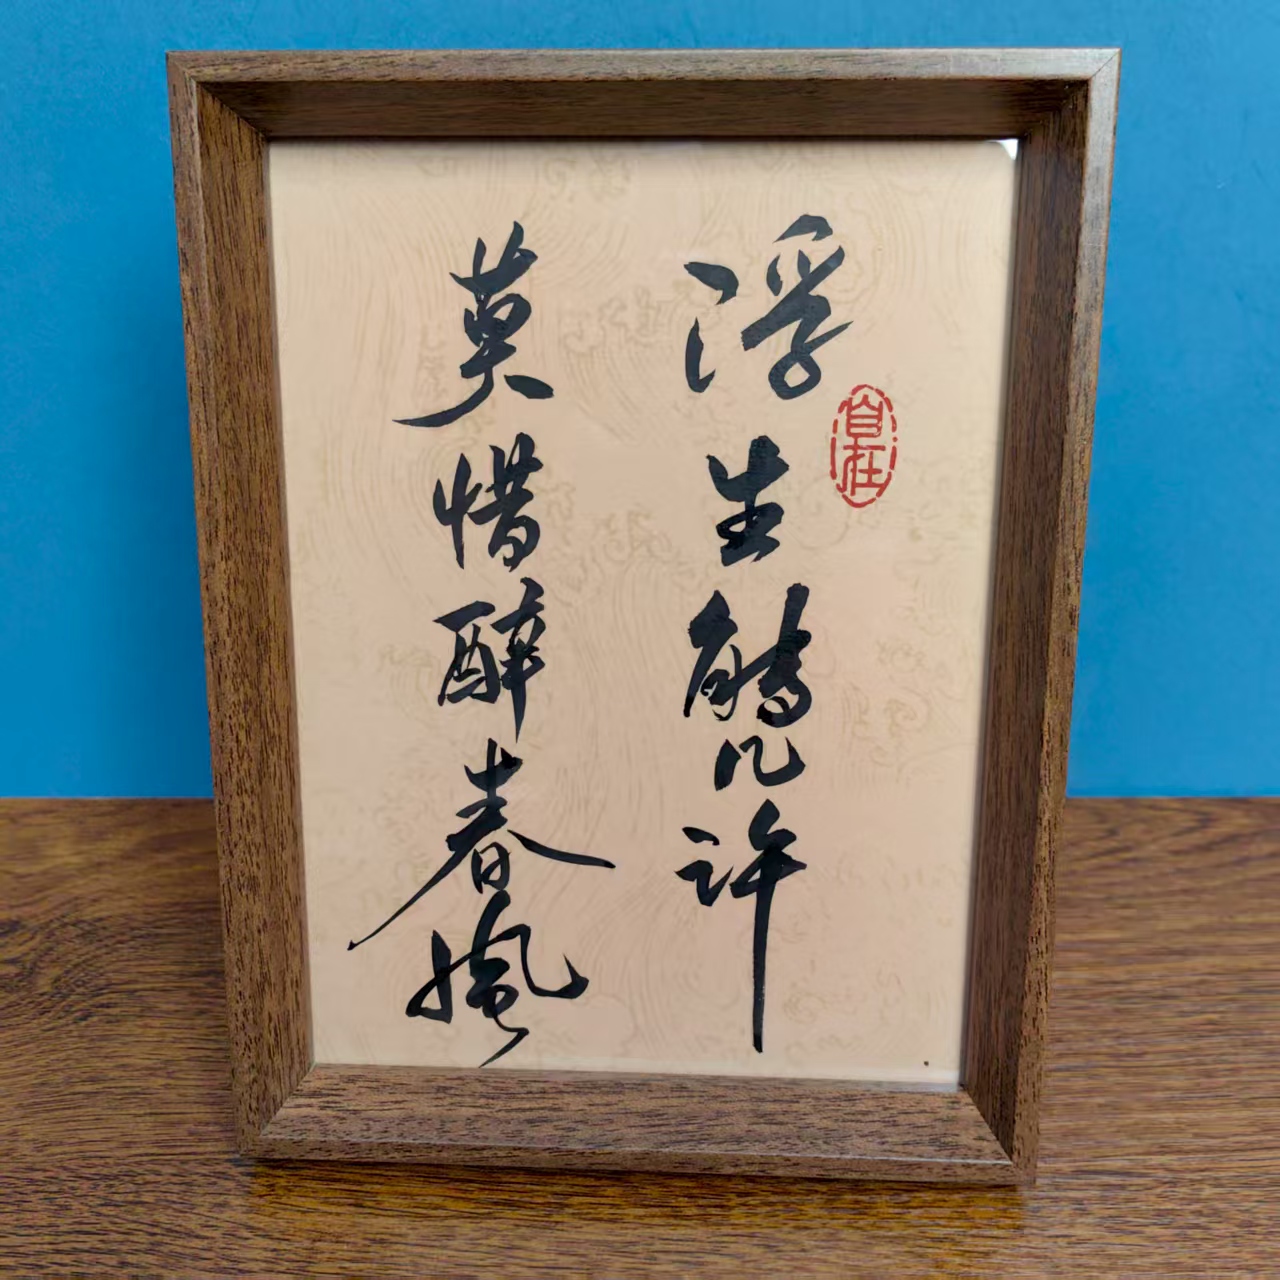 浮生能几许
莫惜醉春風
自在